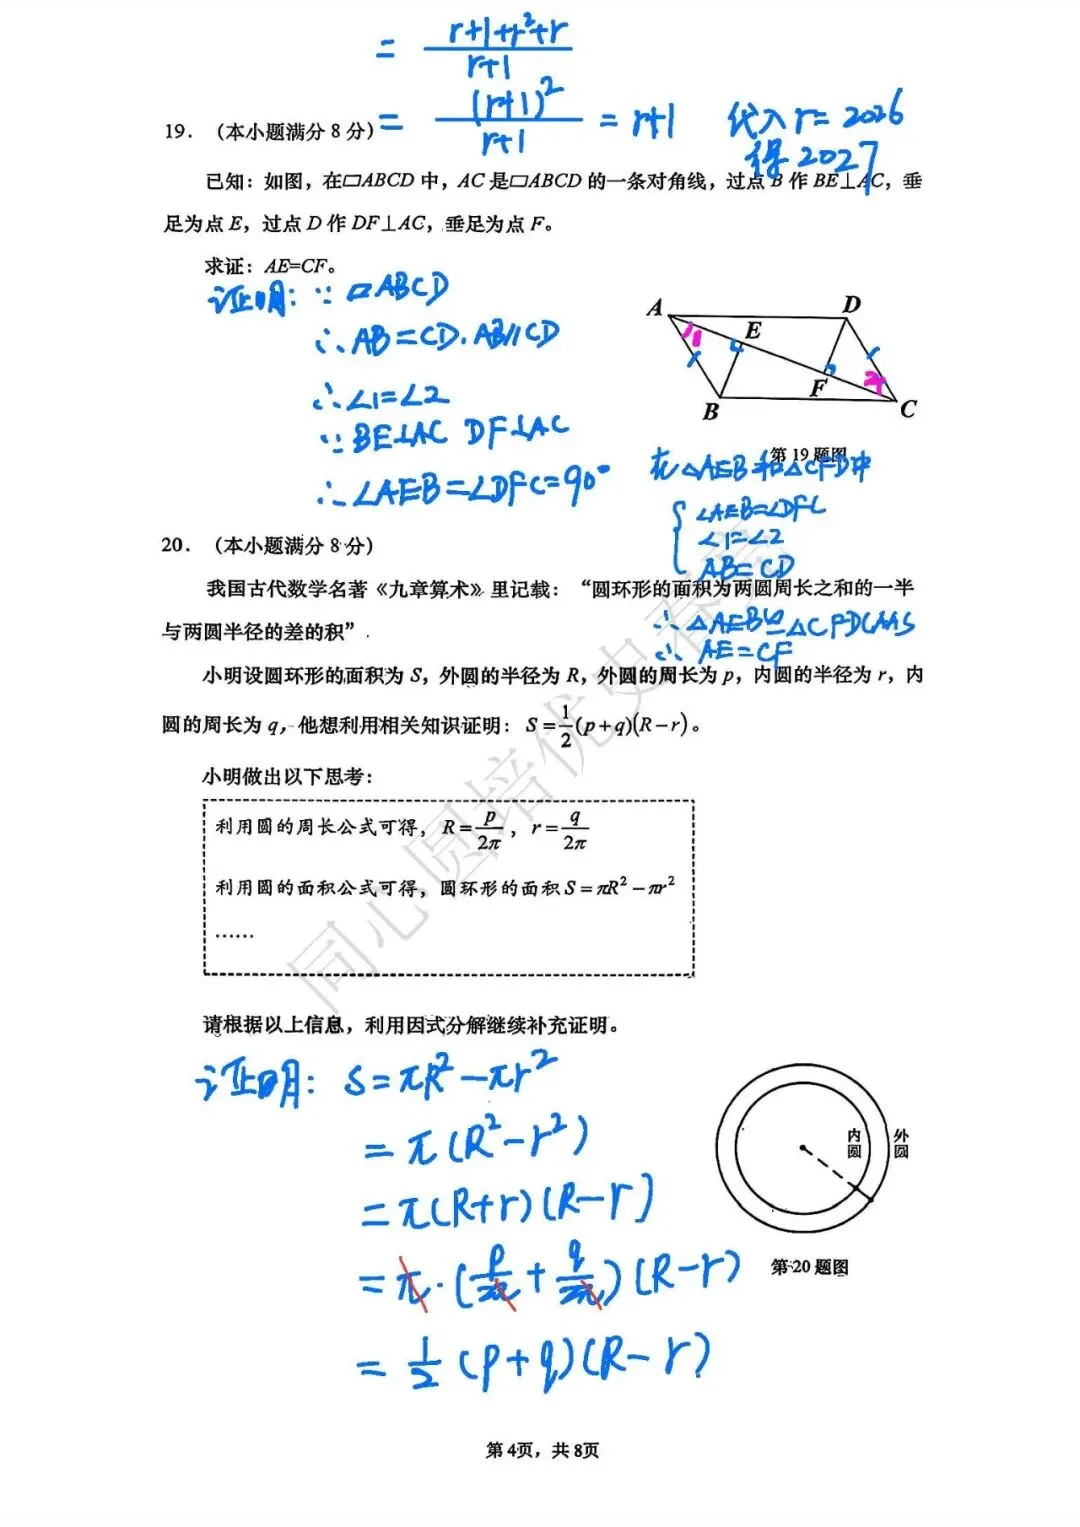 = (r+1+r²+r)/(r+1)
= (r+1)²/(r+1) = r+1 代入r=2026
得2027
19. （本小题满分 8 分）
已知：如图，在▱ABCD 中，AC 是▱ABCD 的一条对角线，过点 B 作 BE⊥AC，垂
足为点 E，过点 D 作 DF⊥AC，垂足为点 F。
求证：AE=CF。
证明：∵ ▱ABCD
∴ AB=CD. AB∥CD
∴ ∠1=∠2
∵ BE⊥AC DF⊥AC
∴ ∠AEB=∠DFC=90°
A
D
E
1
F
2
B
C
第 19 题图
在△AEB和△CFD中
{ ∠AEB=∠DFC
∠1=∠2
AB=CD
∴ △AEB≌△CFD(AAS
∴ AE=CF
20. （本小题满分 8 分）
我国古代数学名著《九章算术》里记载：“圆环形的面积为两圆周长之和的一半
与两圆半径的差的积”.
小明设圆环形的面积为 S，外圆的半径为 R，外圆的周长为 p，内圆的半径为 r，内
圆的周长为 q，他想利用相关知识证明：S=1/2(p+q)(R−r)。
小明做出以下思考：
利用圆的周长公式可得，R=p/2π，r=q/2π
利用圆的面积公式可得，圆环形的面积 S=πR²−πr²
……
请根据以上信息，利用因式分解继续补充证明。
证明：S=πR²−πr²
=π(R²−r²)
=π(R+r)(R−r)
=π·(p/2π+q/2π)(R−r)
=1/2(p+q)(R−r)
内圆
外圆
第 20 题图
同心圆培优史春芳
第 4页，共 8页